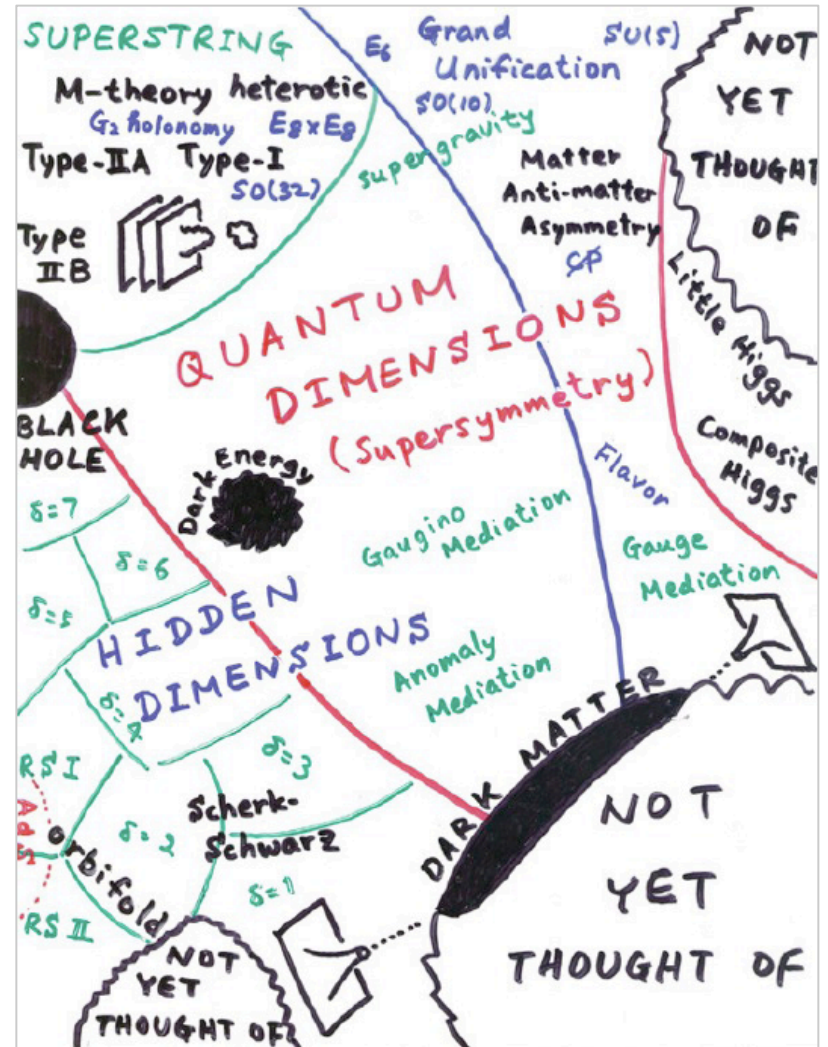 SUPERSTRING
M-theory heterotic
G₂ holonomy E8xE8
Type-IIA Type-I
SO(32)
Type
IIB
E6
Grand
Unification
SU(5)
SO(10)
supergravity
Matter
Anti-matter
Asymmetry
CP
NOT
YET
THOUGHT
OF
Little Higgs
Composite
Higgs
QUANTUM
DIMENSIONS
(Supersymmetry)
BLACK
HOLE
Dark Energy
Flavor
Gaugino
Mediation
Gauge
Mediation
Anomaly
Mediation
δ=7
δ=6
δ=5
HIDDEN
DIMENSIONS
δ=4
δ=3
RS I
AdS
orbifold
δ=2
Scherk-
Schwarz
δ=1
RS II
DARK MATTER
NOT
YET
THOUGHT OF
NOT
YET
THOUGHT OF